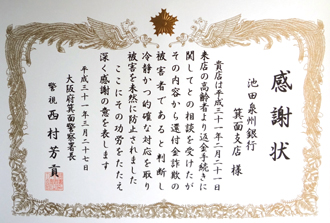 感謝状
池田泉州銀行
箕面支店 様
貴店は平成三十一年二月二十一日
来店の高齢者より返金手続きに
関してとの相談を受けたが
その内容から還付金詐欺の
被害者であると判断し
冷静かつ的確な対応を取り
被害を未然に防止されました
ここにその功労をたたえ
深く感謝の意を表します
平成三十一年三月二十七日
大阪府箕面警察署長
警視 西村芳貢